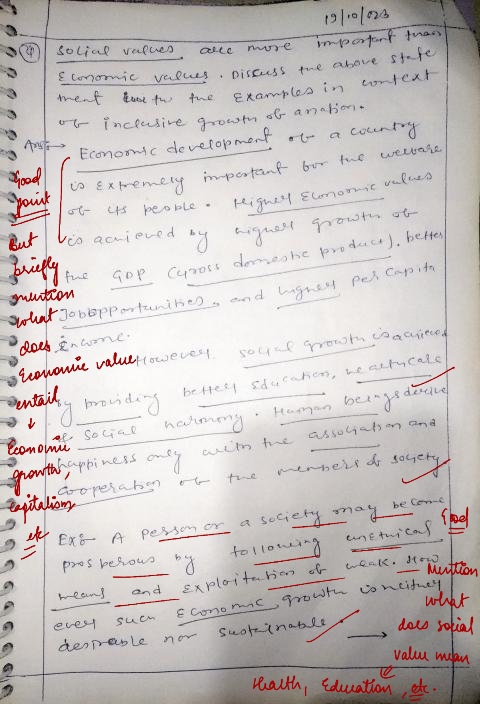 19/10/023
Q4
Social values are more important than
Economic values. Discuss the above state
ment with the Examples in context
of inclusive growth of a nation.
Ans:→ Economic development of a country
is Extremely important for the welfare
of its people. Higher Economic values
is achieved by higher growth of
the GDP (Gross domestic product), better
Job opportunities, and higher per Capita
income.
However, social growth is achieved
by providing better Education, healthcare
& social harmony. Human beings derive
happiness only with the association and
cooperation of the members of society
Ex:- A person or a society may become
prosperous by following unethical
means and Exploitation of weak. How
ever such Economic growth is neither
desirable nor sustainable.
Good
point
But
briefly
mention
what
does
Economic value
entail
↓
Economic
growth,
capitalism
etc
Good
→ Mention
what
does social
value mean
Health, Education, etc.